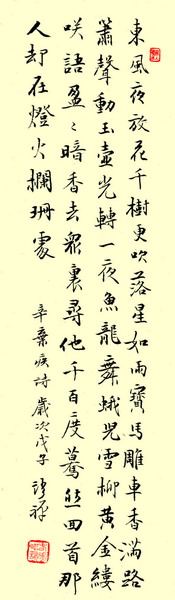 東風夜放花千樹更吹落星如雨寶馬雕車香滿路
簫聲動玉壺光轉一夜魚龍舞蛾兒雪柳黃金縷
咲語盈〻暗香去眾裏尋他千百度驀然回首那
人却在燈火欄珊處
辛棄疾詩歲次戊子